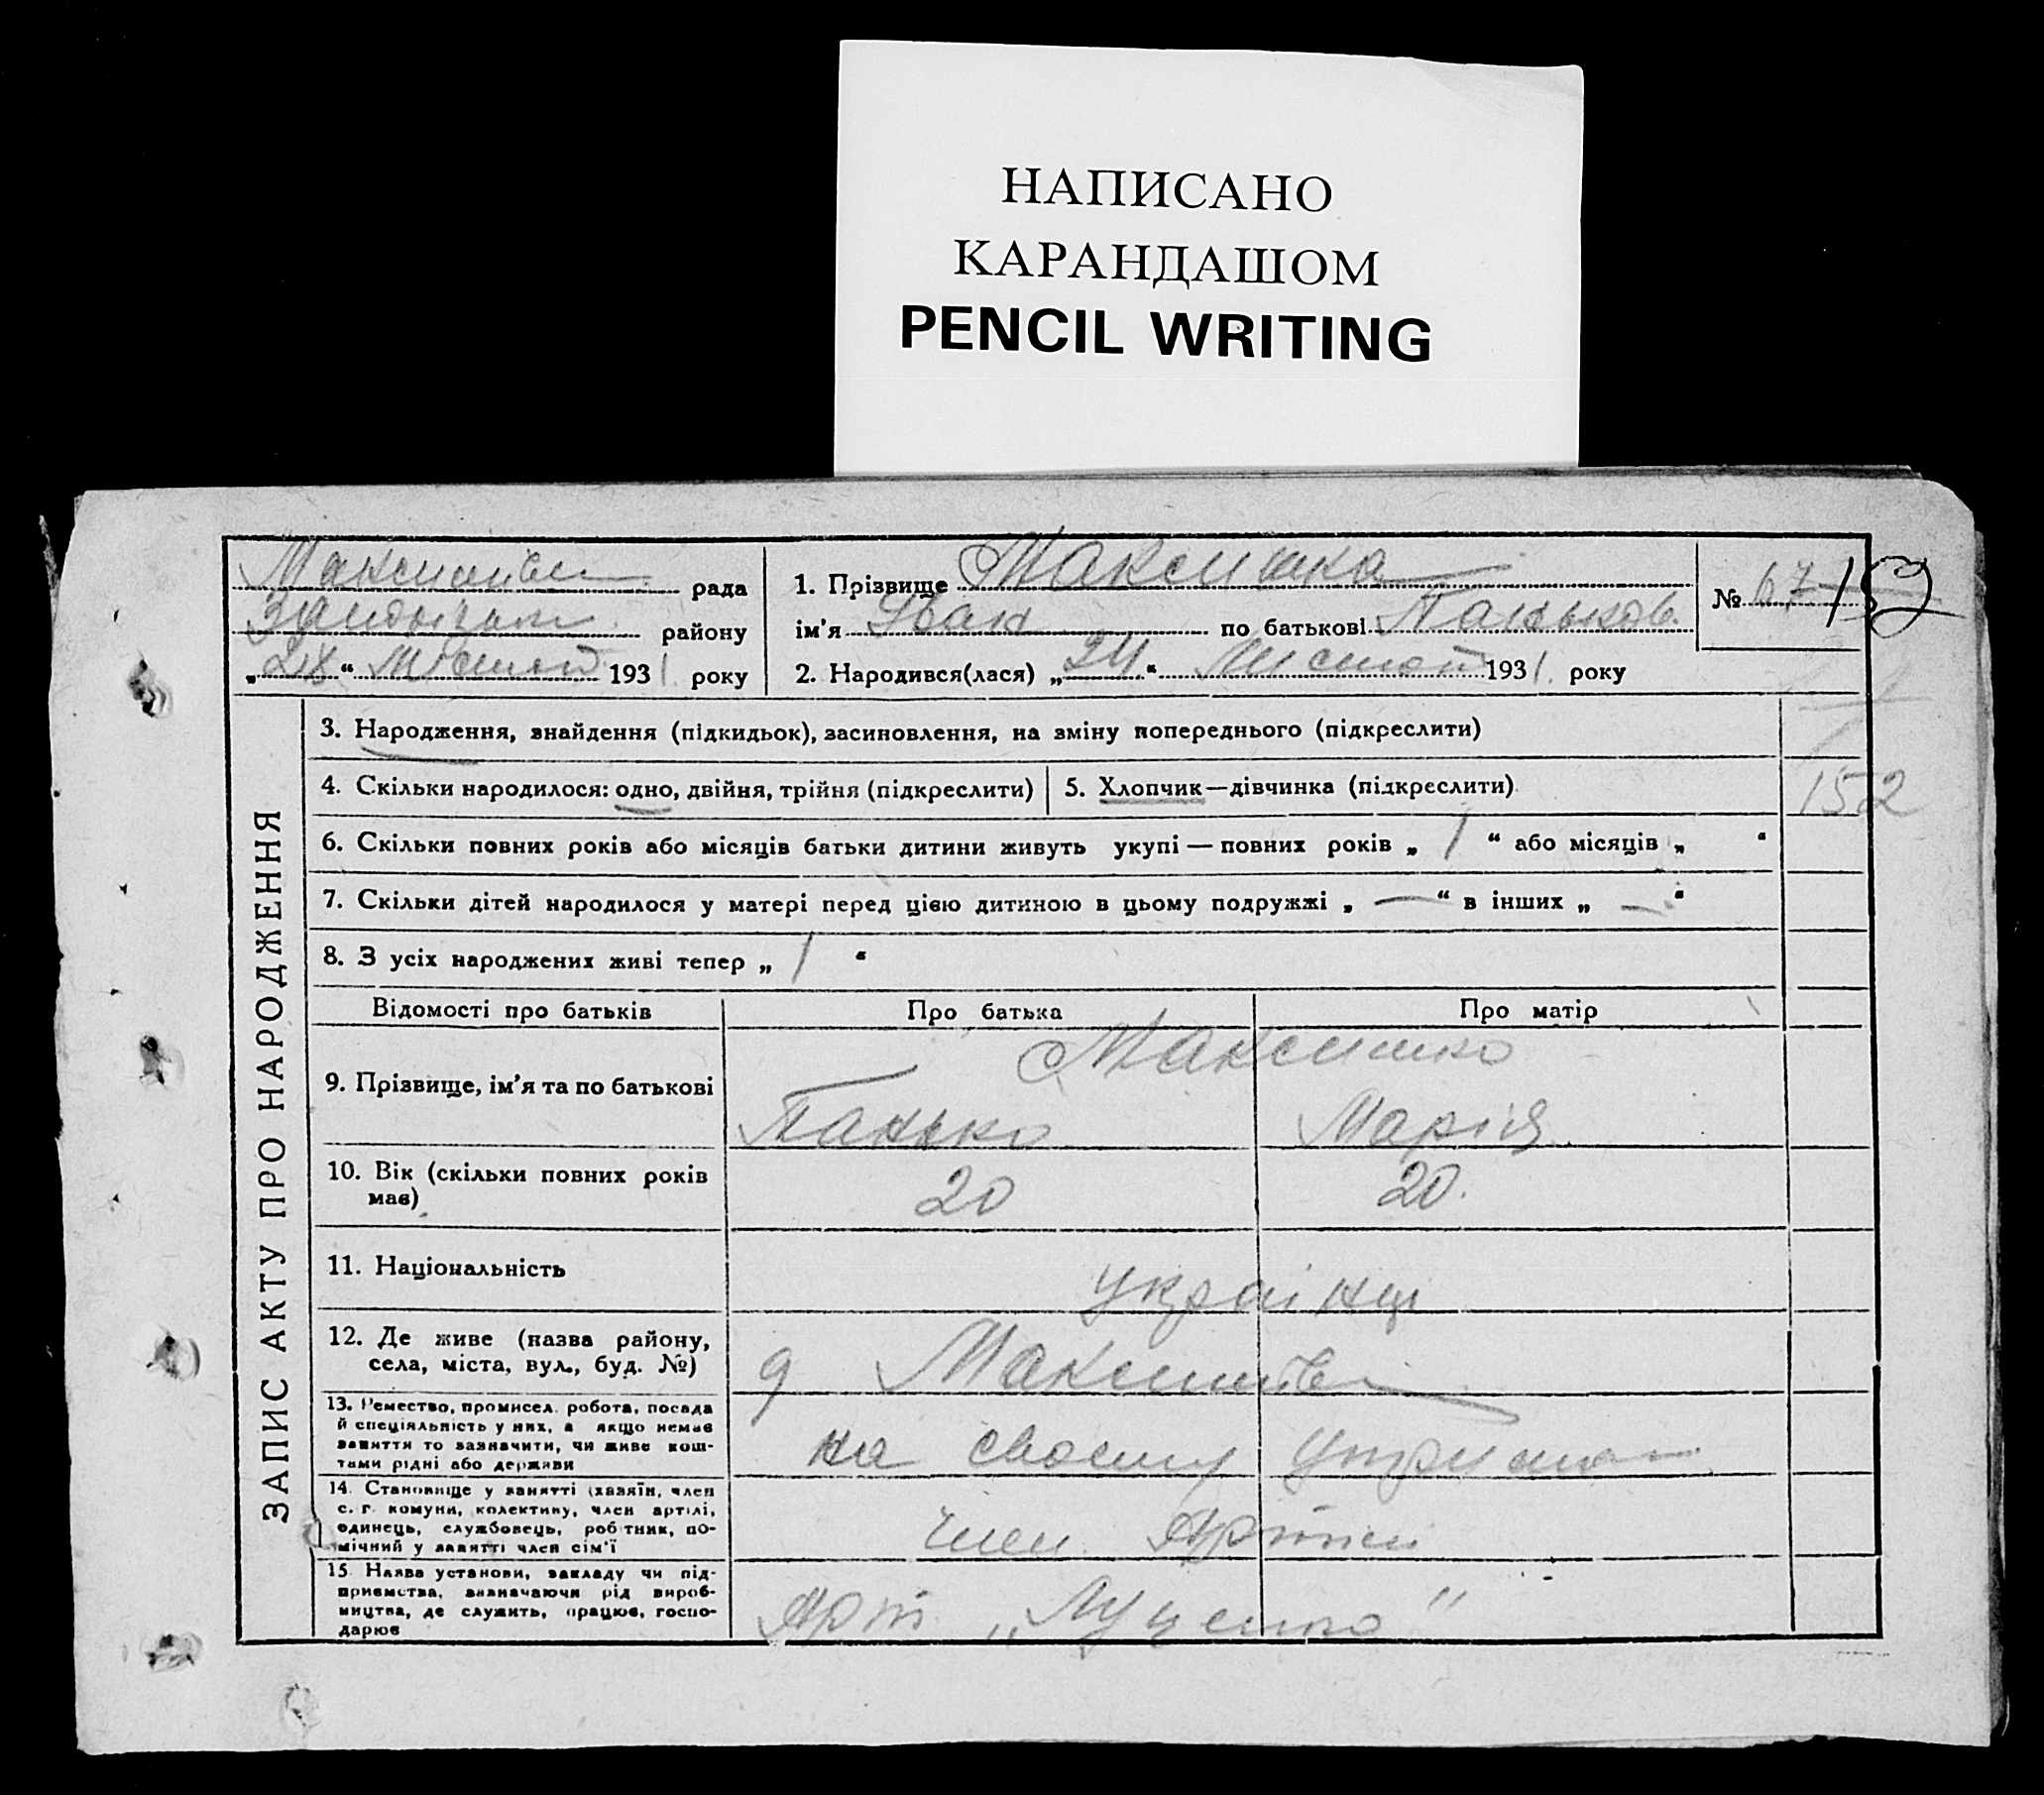 НАПИСАНО
КАРАНДАШОМ
PENCIL WRITING
рада
району
193 1 року
1. Прізвище Максимка
ім'я Іван по батькові Паньков.
2. Народився(лася) „24“ 1931. року
№ 67 152
ЗАПИС АКТУ ПРО НАРОДЖЕННЯ
3. Народження, знайдення (підкидьок), засиновлення, на зміну попереднього (підкреслити)
4. Скільки народилося: одно, двійня, трійня (підкреслити)
5. Хлопчик—дівчинка (підкреслити)
152
6. Скільки повних років або місяців батьки дитини живуть укупі — повних років „ 1 “ або місяців „ “
7. Скільки дітей народилося у матері перед цією дитиною в цьому подружжі „ — “ в інших „ — “
8. З усіх народжених живі тепер „ 1 “
Відомості про батьків
Про батька
Про матір
9. Прізвище, ім'я та по батькові
Максимко
Панько
Марія.
10. Вік (скільки повних років
має)
20
20.
11. Національність
українці
12. Де живе (назва району,
села, міста, вул., буд. №)
13. Ремество, промисел, робота, посада
й спеціяльність у них, а якщо немає
заняття то зазначити, чи живе кош-
тами рідні або держави
на своєму
14. Становище у занятті (хазяїн, член
с. г. комуни, колективу, член артілі,
одинець, службовець, робітник, по-
мічний у занятті член сім'ї
член Артілі
15. Назва установи, закладу чи під-
приємства, визначаючи рід вироб-
ництва, де служить, працює, госпо-
дарює
Арт.